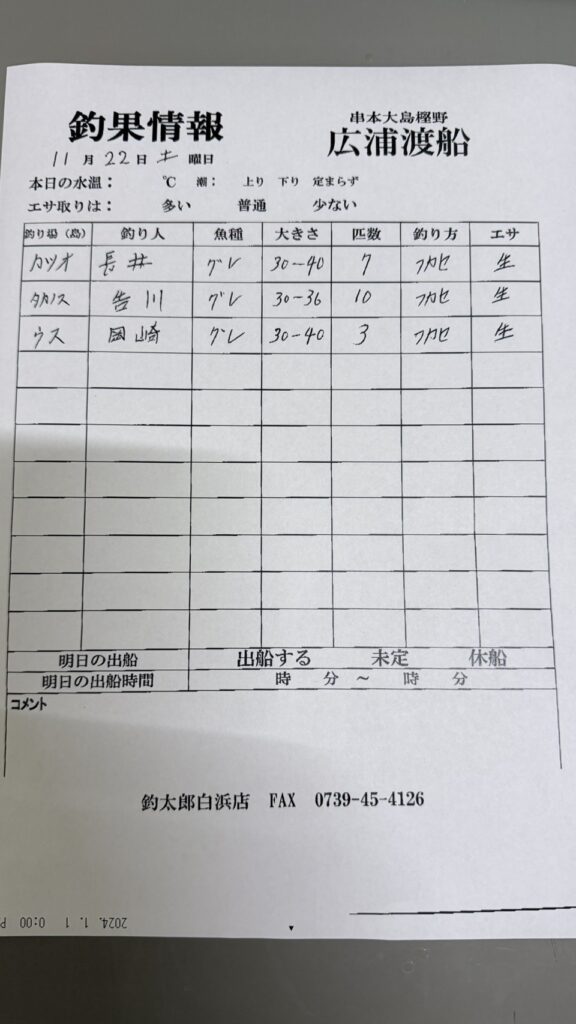 釣果情報
串本大島樫野
広浦渡船
11月22日土曜日
本日の水温： ℃ 潮： 上り 下り 定まらず
エサ取りは： 多い 普通 少ない
釣り場（島） 釣り人 魚種 大きさ 匹数 釣り方 エサ
カツオ 長井 グレ 30-40 7 フカセ 生
タカノス 吉川 グレ 30-36 10 フカセ 生
ウス 岡崎 グレ 30-40 3 フカセ 生
明日の出船 出船する 未定 休船
明日の出船時間 時 分 ～ 時 分
コメント
釣太郎白浜店 FAX 0739-45-4126
2024. 1. 1 0:00 P